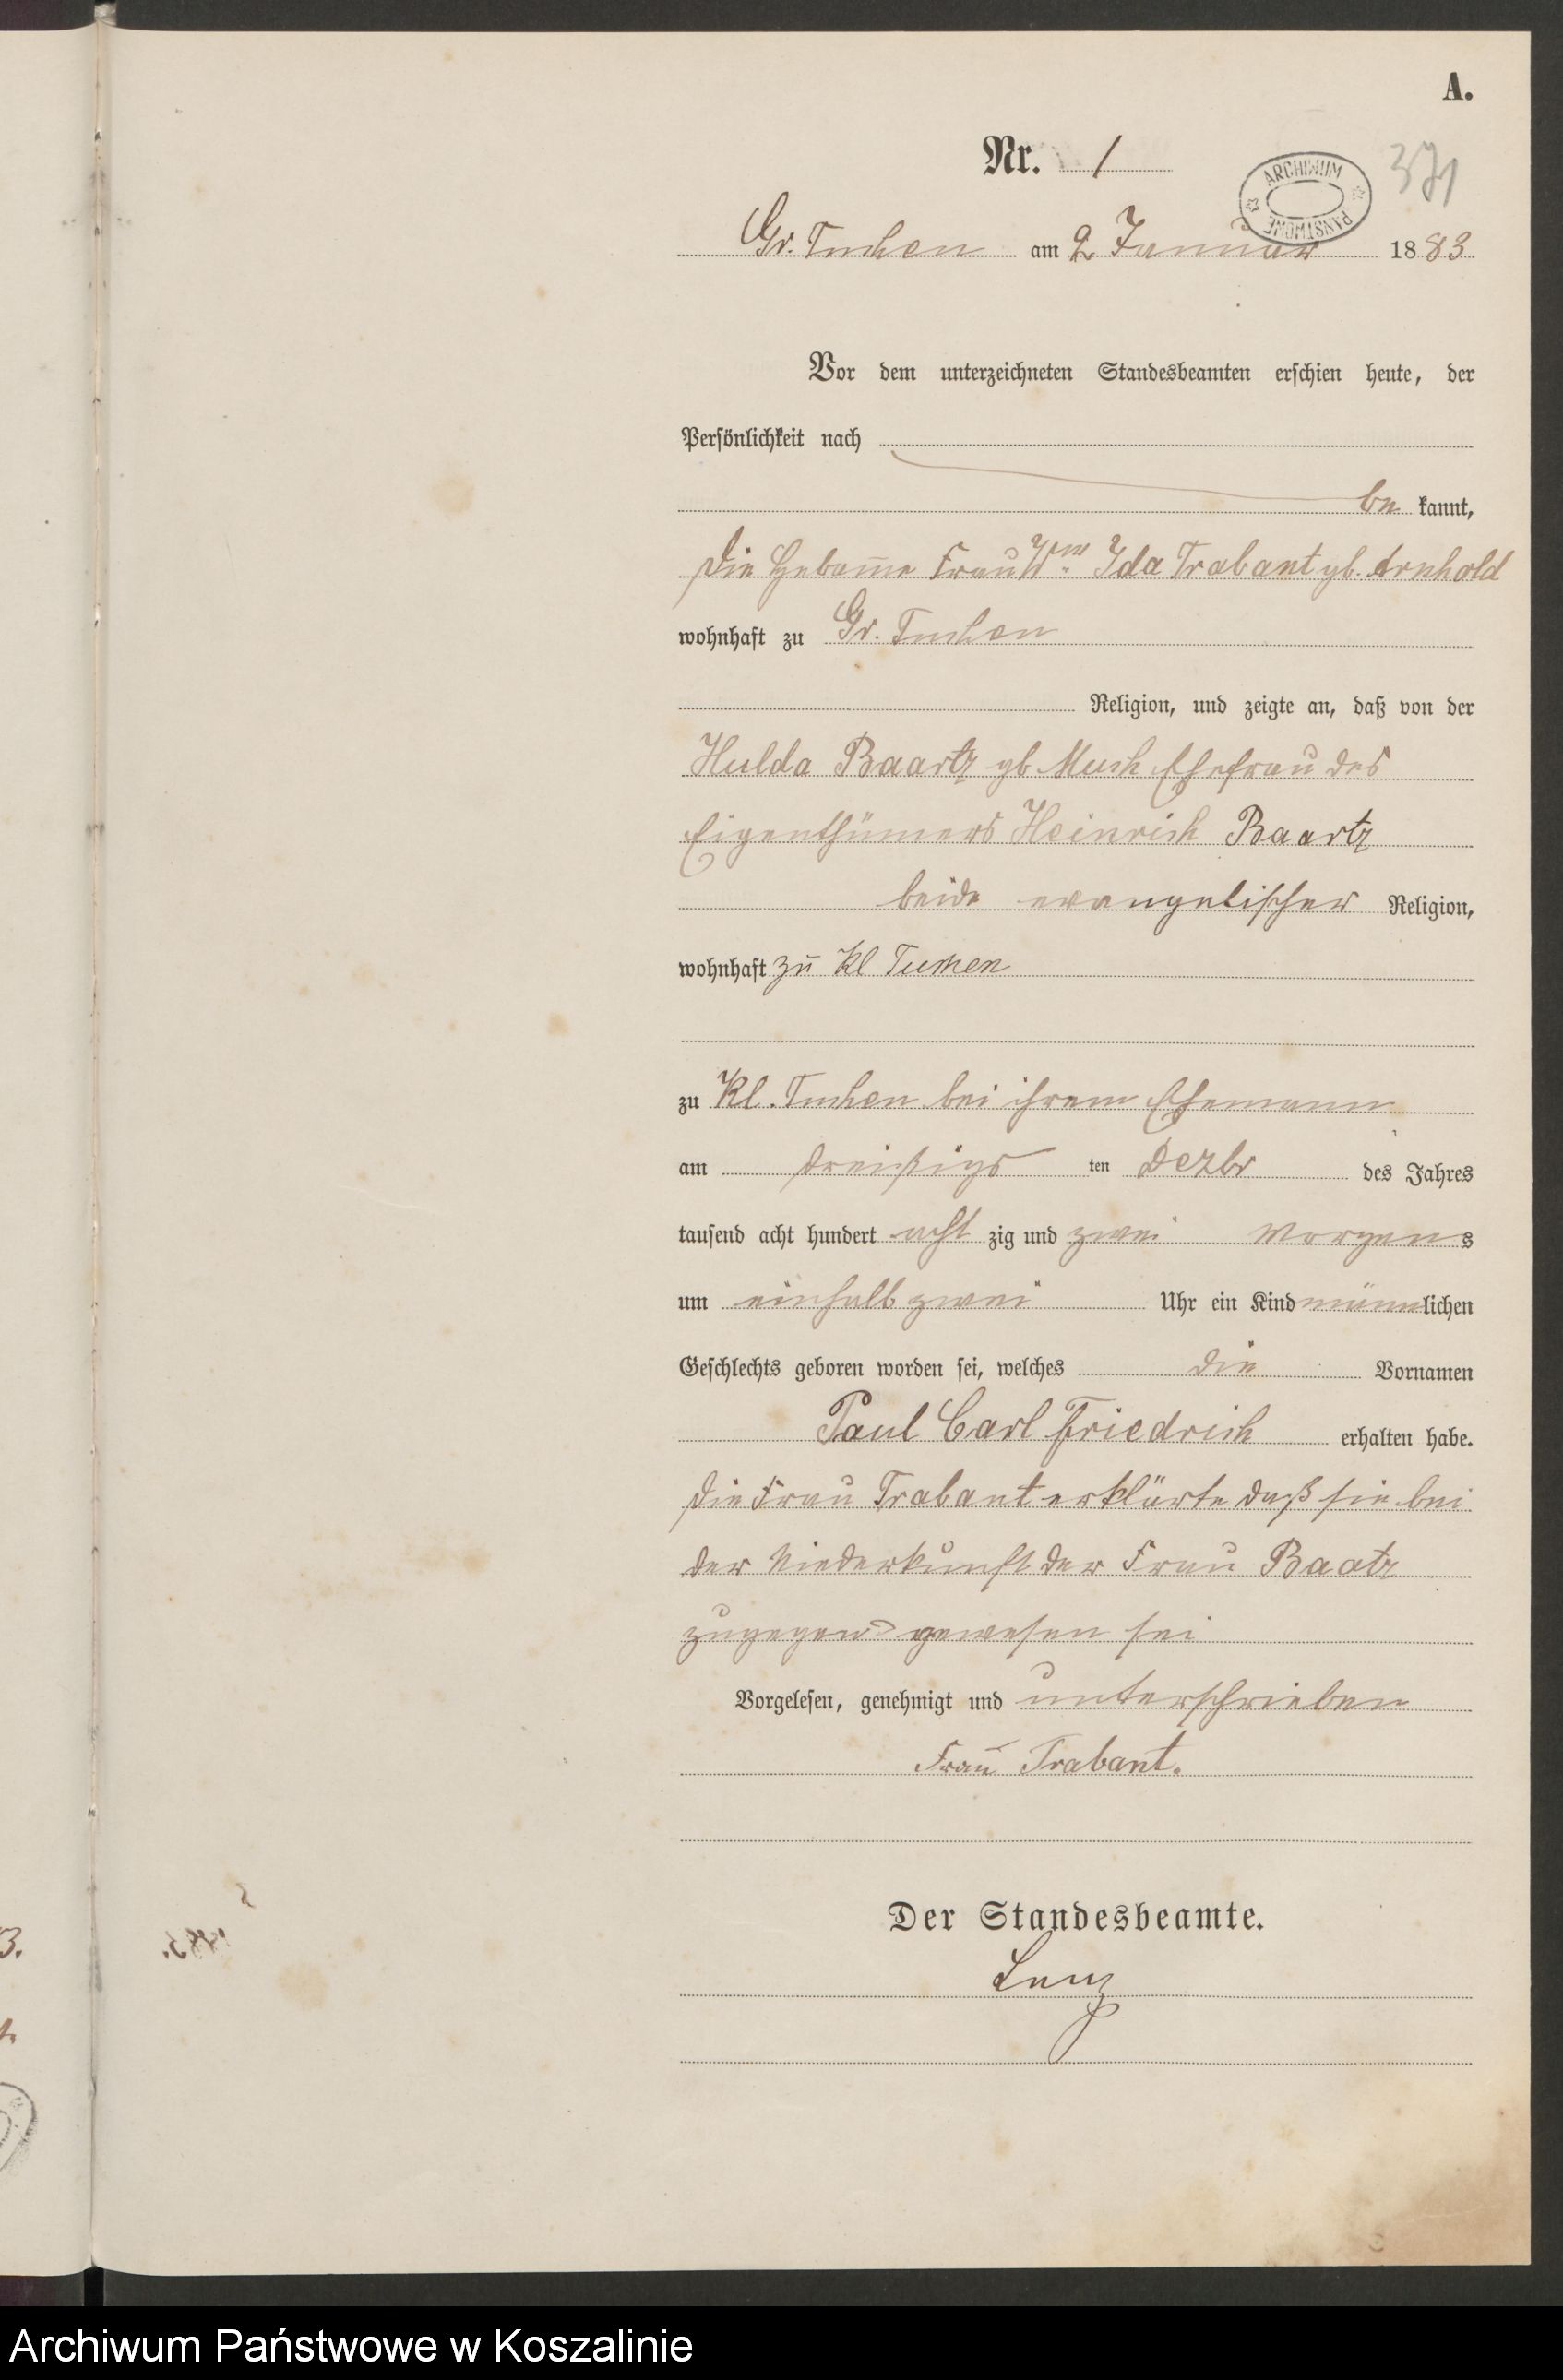 A.
Nr. 1
ARCHIWUM PAŃSTWOWE
371
Gr. Tuchen am 2 Januar 1883
Vor dem unterzeichneten Standesbeamten erschien heute, der
Persönlichkeit nach
be kannt,
die Hebamme Frau Ida Trabant gb. Arnhold
wohnhaft zu Gr. Tuchen
Religion, und zeigte an, daß von der
Hulda Baartz gb Ehefrau des
Eigenthümers Heinrich Baartz
beide evangelischer Religion,
wohnhaft zu Kl Tuchen
zu Kl. Tuchen bei ihrem Ehemann
am dreißigs ten Dezbr des Jahres
tausend acht hundert acht zig und zwei Morgens
um einhalb zwei Uhr ein Kind männlichen
Geschlechts geboren worden sei, welches die Vornamen
Paul Carl Friedrich erhalten habe.
die Frau Trabant erklärte daß sie bei
der Niederkunft der Frau Baatz
zugegen gewesen sei
Vorgelesen, genehmigt und unterschrieben
Frau Trabant.
Der Standesbeamte.
Lenz
Archiwum Państwowe w Koszalinie